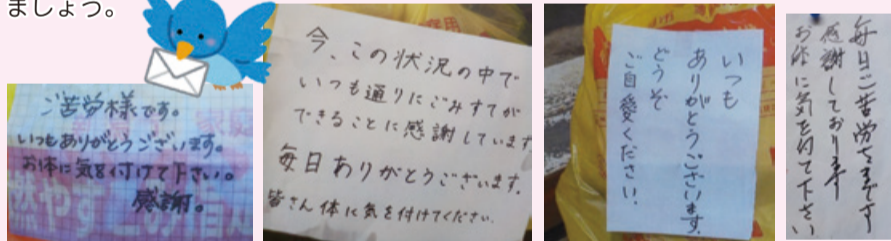 ましょう。
ご苦労様です。
いつもありがとうございます。
お体に気を付けて下さい。
感謝。
今、この状況の中で
いつも通りにごみすてが
できることに感謝しています
毎日ありがとうございます。
皆さん体に気を付けてください。
いつも
ありがとうございます。
どうぞ
ご自愛ください。
毎日ご苦労さまです
感謝しております
お体に気を付て下さい
燃やす